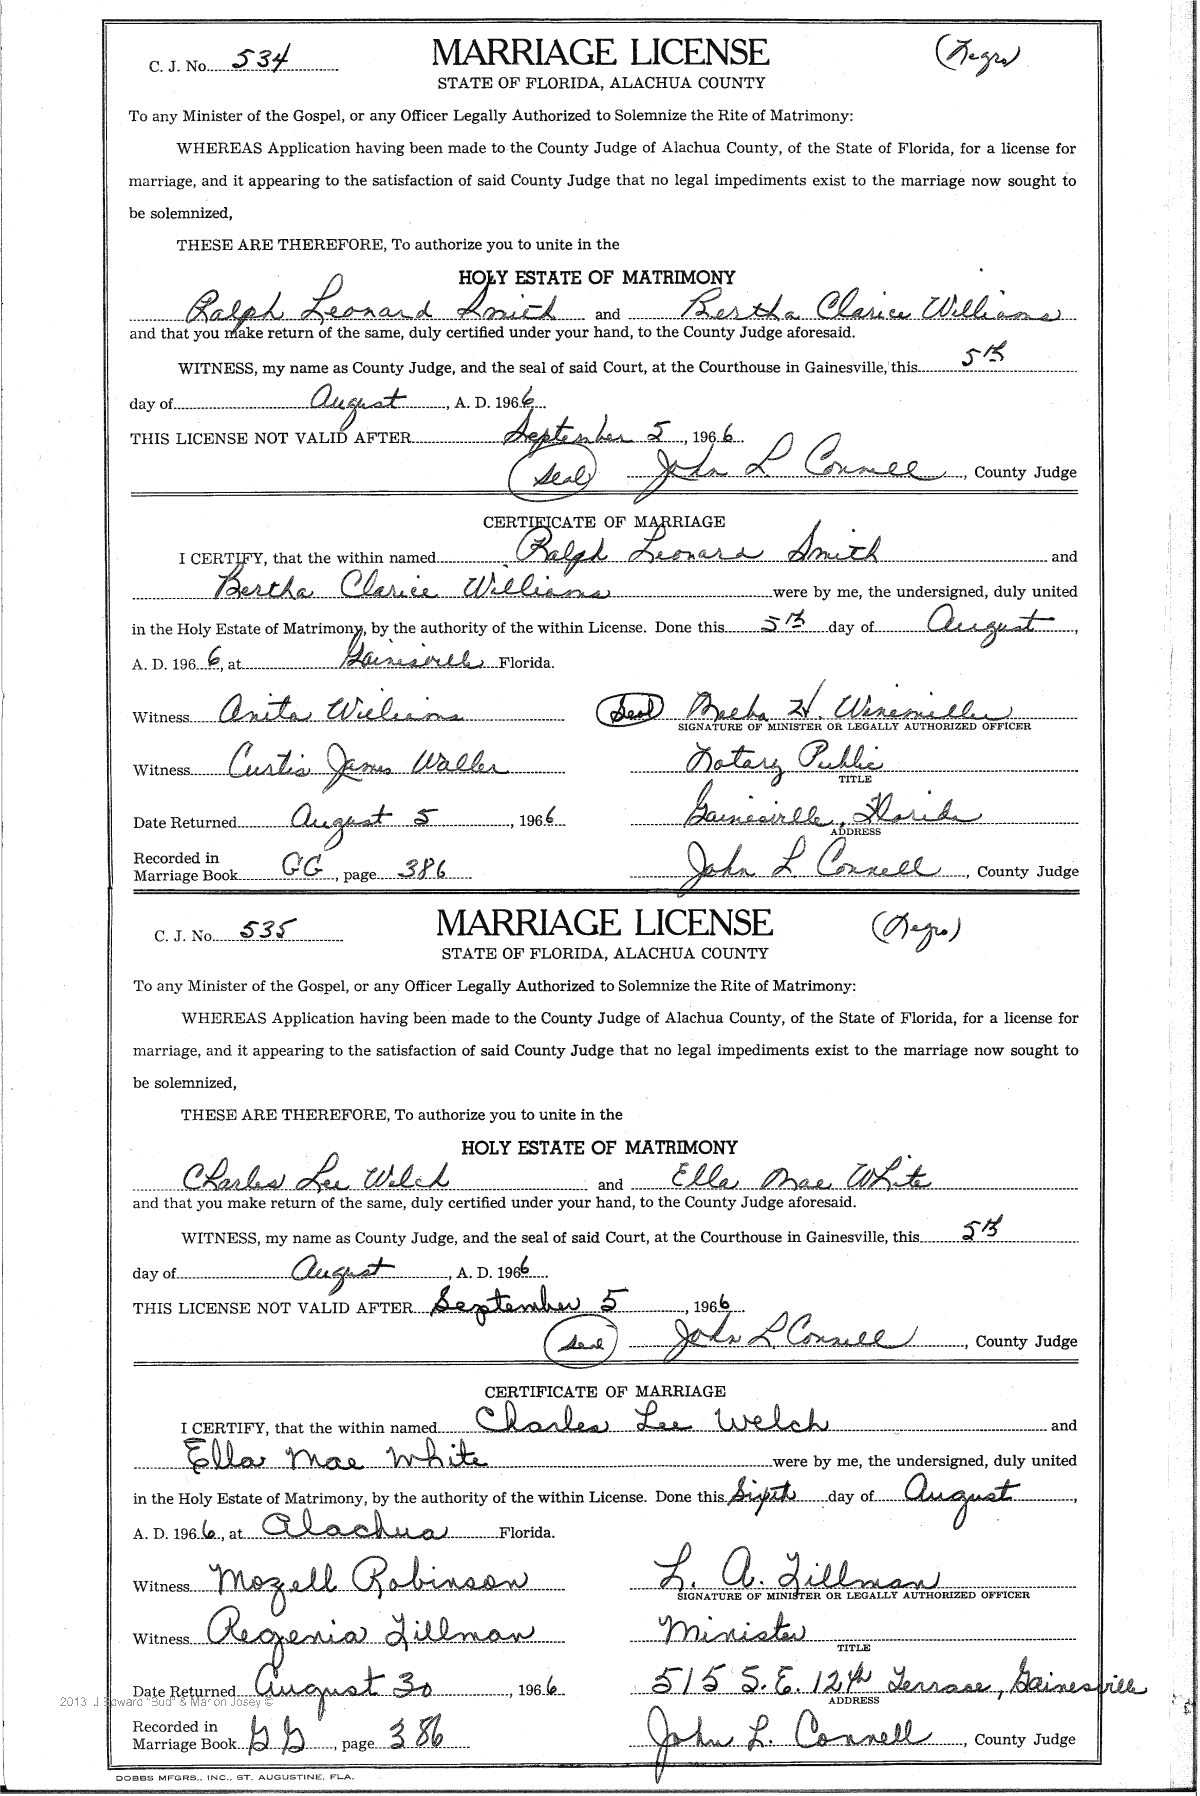 C. J. No. 534 MARRIAGE LICENSE (Negro)
STATE OF FLORIDA, ALACHUA COUNTY
To any Minister of the Gospel, or any Officer Legally Authorized to Solemnize the Rite of Matrimony:
WHEREAS Application having been made to the County Judge of Alachua County, of the State of Florida, for a license for
marriage, and it appearing to the satisfaction of said County Judge that no legal impediments exist to the marriage now sought to
be solemnized,
THESE ARE THEREFORE, To authorize you to unite in the
HOLY ESTATE OF MATRIMONY
Ralph Leonard Smith and Bertha Clarice Williams
and that you make return of the same, duly certified under your hand, to the County Judge aforesaid.
WITNESS, my name as County Judge, and the seal of said Court, at the Courthouse in Gainesville, this 5th
day of August, A. D. 1966
THIS LICENSE NOT VALID AFTER September 5, 1966
(Seal) John L. Connell, County Judge
CERTIFICATE OF MARRIAGE
I CERTIFY, that the within named Ralph Leonard Smith and
Bertha Clarice Williams were by me, the undersigned, duly united
in the Holy Estate of Matrimony, by the authority of the within License. Done this 5th day of August,
A. D. 1966, at Gainesville Florida.
Witness Anita Williams (Seal) H. Winemiller
SIGNATURE OF MINISTER OR LEGALLY AUTHORIZED OFFICER
Witness Curtis James Waller Notary Public
TITLE
Date Returned August 5, 1966 Gainesville, Florida
ADDRESS
Recorded in
Marriage Book GG, page 386 John L. Connell, County Judge
C. J. No. 535 MARRIAGE LICENSE (Negro)
STATE OF FLORIDA, ALACHUA COUNTY
To any Minister of the Gospel, or any Officer Legally Authorized to Solemnize the Rite of Matrimony:
WHEREAS Application having been made to the County Judge of Alachua County, of the State of Florida, for a license for
marriage, and it appearing to the satisfaction of said County Judge that no legal impediments exist to the marriage now sought to
be solemnized,
THESE ARE THEREFORE, To authorize you to unite in the
HOLY ESTATE OF MATRIMONY
Charles Lee Welch and Ella Mae White
and that you make return of the same, duly certified under your hand, to the County Judge aforesaid.
WITNESS, my name as County Judge, and the seal of said Court, at the Courthouse in Gainesville, this 5th
day of August, A. D. 1966
THIS LICENSE NOT VALID AFTER September 5, 1966
(Seal) John L. Connell, County Judge
CERTIFICATE OF MARRIAGE
I CERTIFY, that the within named Charles Lee Welch and
Ella Mae White were by me, the undersigned, duly united
in the Holy Estate of Matrimony, by the authority of the within License. Done this Sixth day of August,
A. D. 1966, at Alachua Florida.
Witness Mozell Robinson L. A. Tillman
SIGNATURE OF MINISTER OR LEGALLY AUTHORIZED OFFICER
Witness Regenia Tillman Minister
TITLE
Date Returned August 30, 1966 515 S. E. 12th Terrace, Gainesville
ADDRESS
2013 J Edward "Bud" & Marion Josey ©
Recorded in
Marriage Book GG, page 386 John L. Connell, County Judge
DOBBS MFGRS., INC., ST. AUGUSTINE, FLA.